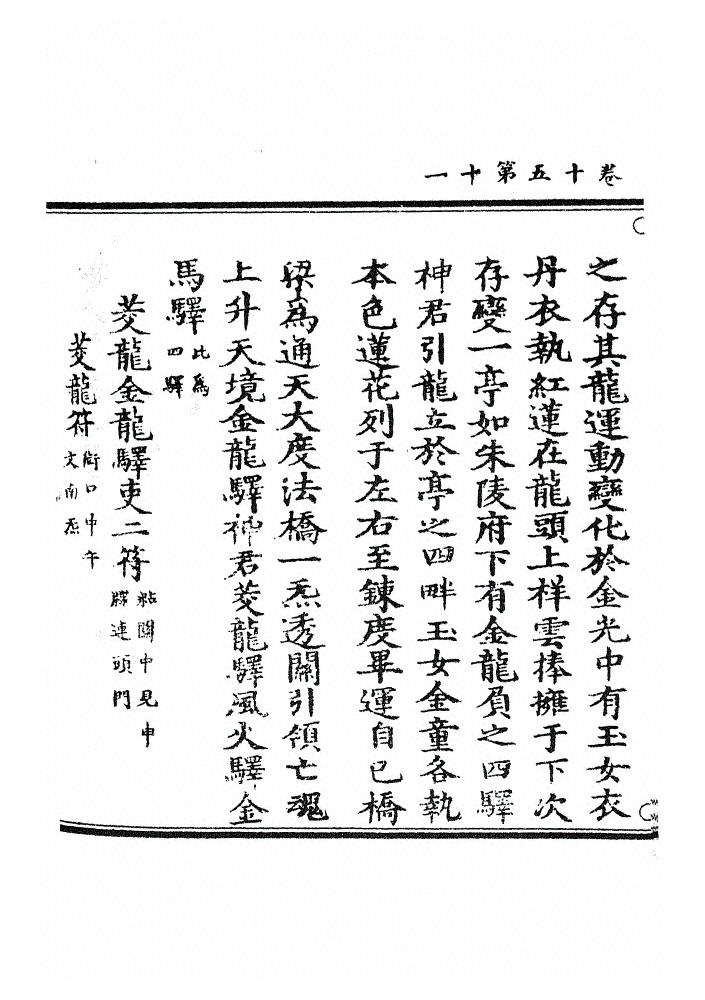 卷十五第十一
之存其龍運動變化於金光中有玉女衣
丹衣執紅蓮在龍頭上祥雲捧擁于下次
存變一亭如朱陵府下有金龍負之四驛
神君引龍立於亭之四畔玉女金童各執
本色蓮花列于左右至鍊度畢運自已橋
梁為通天大度法橋一炁透關引領亡魂
上升天境金龍驛神君茭龍驛風火驛金
馬驛比為四驛
茭龍金龍驛吏二符粘關中見申牒連頭門
茭龍符衙口申午文南炁